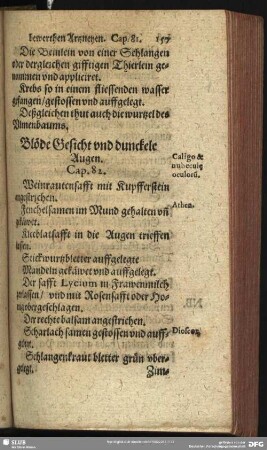 bewerthen Artzneyen. Cap. 81. 157
Die Beinlein von einer Schlangen
oder dergleichen gifftigen Thierlein ge-
nommen vnd appliciret.
Krebs so in einem fliessenden wasser
gefangen/ gestossen vnd auffgelegt.
Deßgleichen thut auch die wurtzel des
Blöde Gesicht vnd dunckele
Augen.
Caligo &
nubeculę
oculorũ.
Cap. 82.
Weinrautensafft mit Kupfferstein
angestrichen.
Fenchelsamen im Mund gehalten vñ
gekäwet.
Athen.
Kleeblatsafft in die Augen trieffen
lassen.
Stickwurtzbletter auffgelegt
Mandeln gekäwet vnd auffgelegt.
Der safft Lycium in Frawenmilch
zulassen/ vnd mit Rosensafft oder Ho-
nig vbergeschlagen.
Der rechte balsam angestrichen.
Scharlach samen gestossen vnd auff-
gelegt.
Dioscor.
Schlangenkraut bletter grün vber-
gelegt.
Zim-
NB.
SLUB